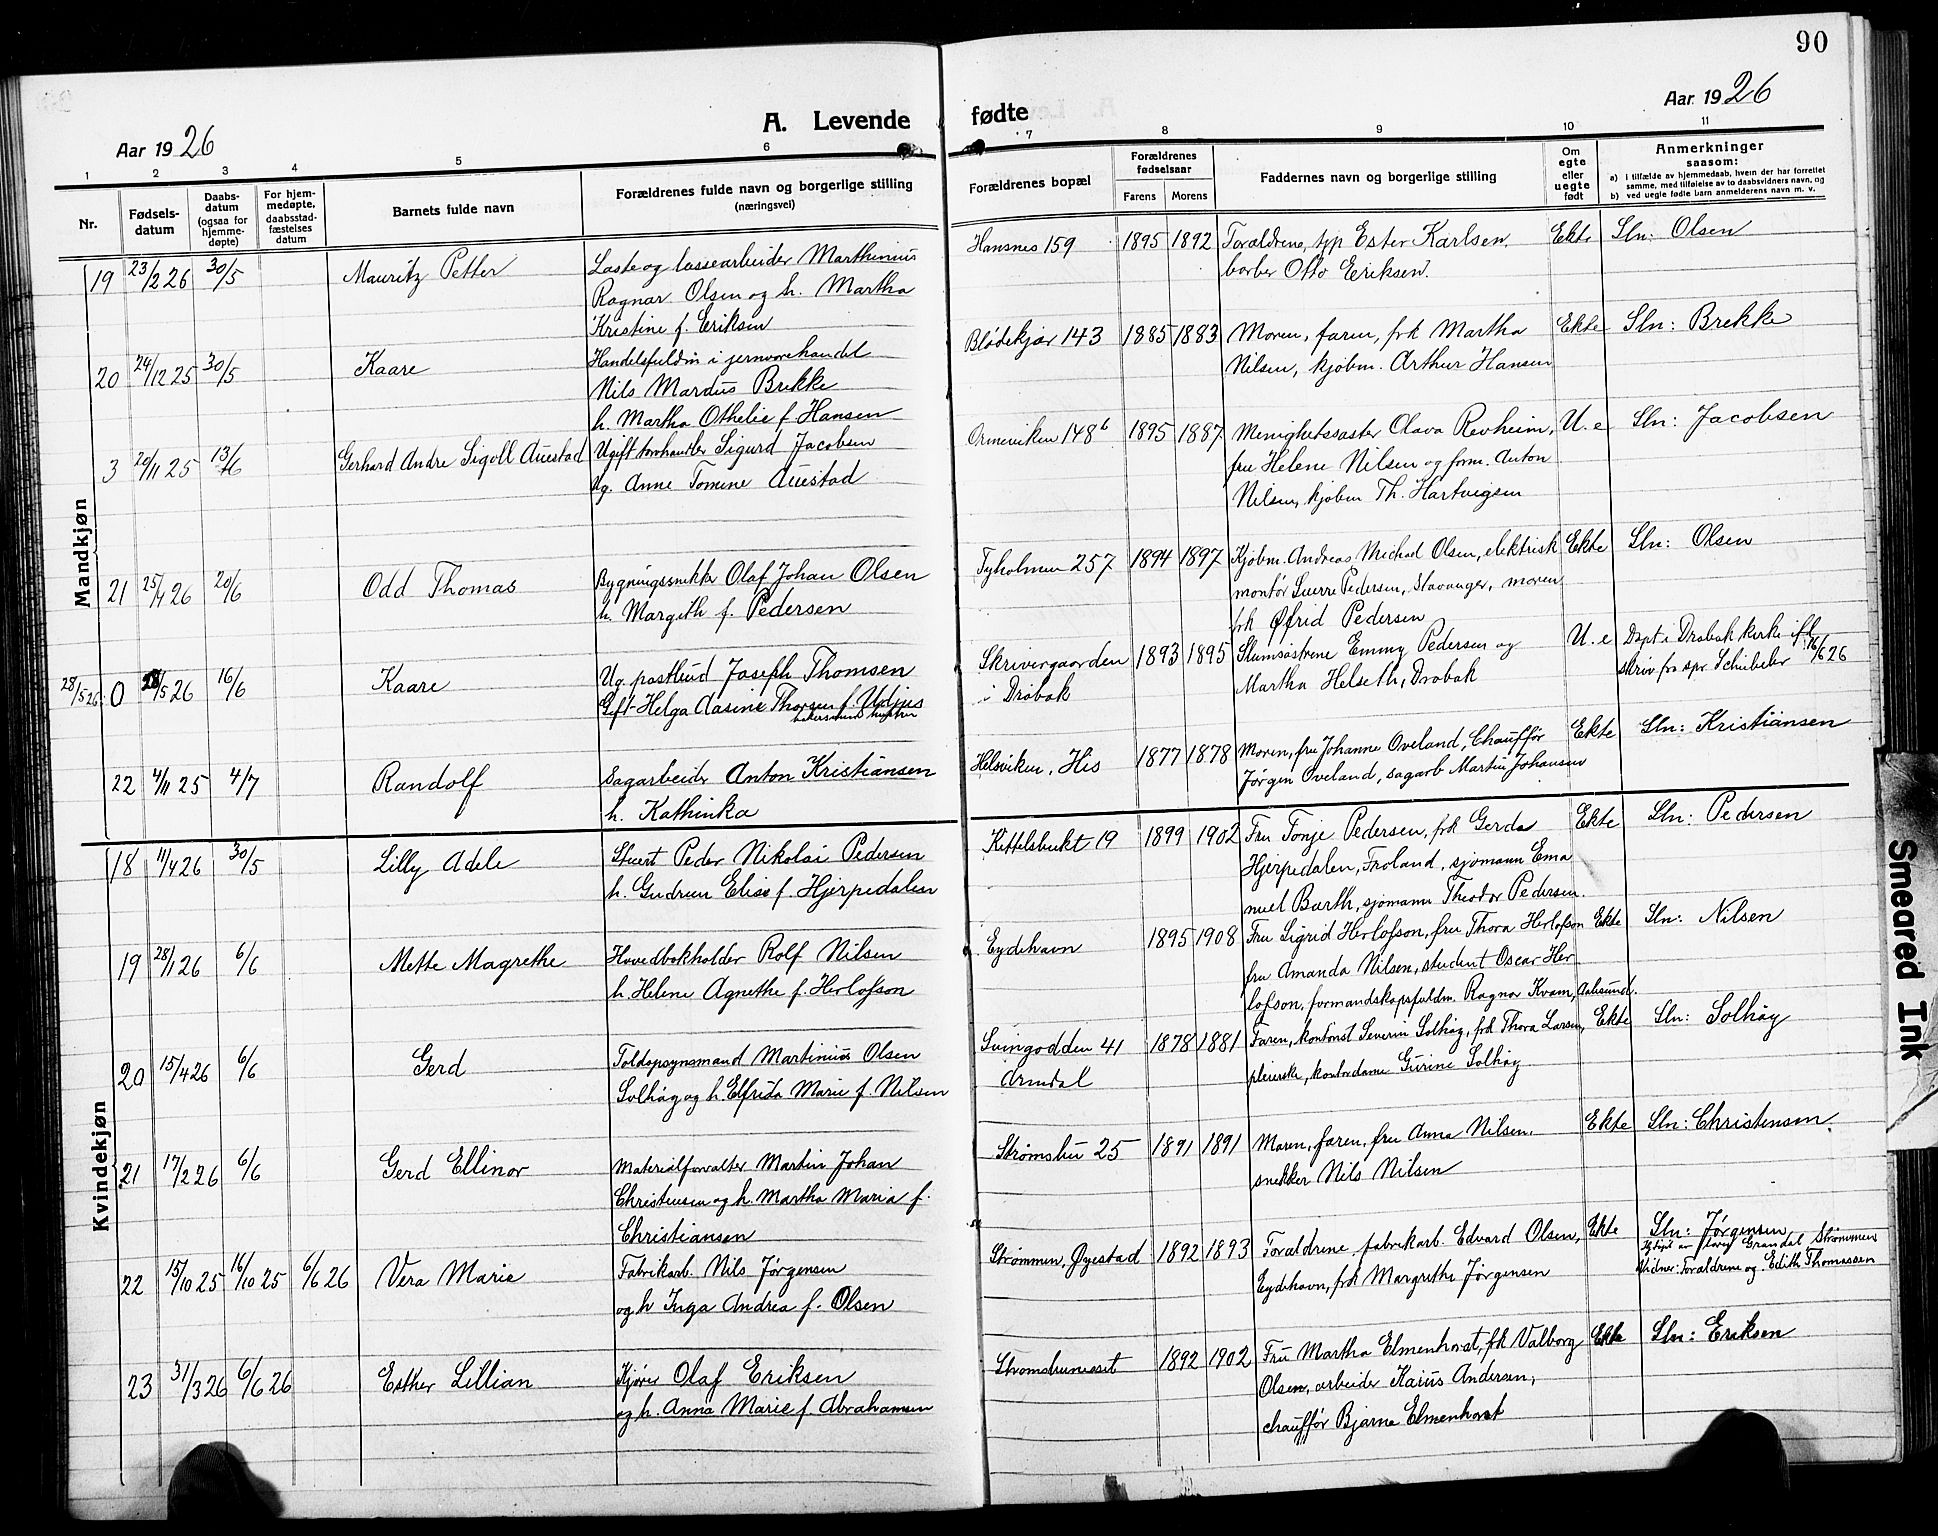 90
Aar 1926
A. Levende
fødte
Aar 1926
1 2 3 4 5 6
7 8 9 10 11
Nr.
Fødsels-
datum
Daabs-
datum
(ogsaa for
hjemme-
døpte)
For hjem-
medøpte,
daabsstad-
fæstelses
datum
Barnets fulde navn
Forældrenes fulde navn og borgerlige stilling
(næringsvei)
Forældrenes bopæl
Forældrenes
fødselsaar
Farens Morens
Faddernes navn og borgerlige stilling
Om
egte
eller
uegte
født
Anmerkninger
saasom:
a) I tilfælde av hjemmedaab, hvem der har forrettet
samme, med tilføielse av to daabsvidners navn, og
b) ved uegte fødte barn anmelderens navn m. v.
Mandkjøn
19 23/2 26 30/5 Mauritz Petter
Laste og lossearbeider Marthinius
Ragnar Olsen og h. Martha
Kristine f. Eriksen
Hansnes 159 1895 1892 Forældrene, Ester Karlsen,
barber Otto Eriksen.
Ekte Sln: Olsen
20 24/12 25 30/5 Kaare
Handelsfuldm i jernvarehandel
Nils Mardus Brekke
h. Martha Othelie f. Hansen
Blødekjær 143 1885 1883 Moren, faren, frk Martha
Nilsen, kjøbm. Arthur Hansen
Ekte Sln: Brekke
3 20/11 25 13/6 Gerhard Andre Sigoll Auestad
Ugift Sigurd Jacobsen
Ug. Anne Tomine Auestad
Ormeviken 148b 1895 1887 Menighetssøster Olava Revheim,
fru Helene Nilsen og form. Anton
Nilsen, kjøbm Th. Hartvigsen
U. e Sln: Jacobsen
21 25/4 26 20/6 Odd Thomas
Bygningssnekker Olaf Johan Olsen
h. Margith f. Pedersen
Tyholmen 257 1894 1897 Kjøbm. Andreas Michael Olsen, elektrisk
montør Sverre Pedersen, Stavanger, moren
frk Øfrid Pedersen
Ekte Sln: Olsen
28/5 26 0 /5 26 16/6 Kaare
Ug. postbud Joseph Thomsen
Gift Helga Aasine Thorsen f.
Skrivergaarden
i Drøbak
1893 1895 Slumsøstrene Emmy Pedersen og
Martha Helseth, Drøbak
U. e Døpt i Drøbak kirke ifl
skriv fra spr. Schübeler 16/6 26
22 4/11 25 4/7 Randolf
Sagarbeider Anton Kristiansen
h. Kathinka
Helsviken, His 1877 1878 Moren, fru Johanne Oveland, Chauffør
Jørgen Oveland, sagarb Martin Johansen
Ekte Sln: Kristiansen
Kvindekjøn
18 11/4 26 30/5 Lilly Adele
Stuert Peder Nikolai Pedersen
h. Gudrun Elise f. Hjerpedalen
Kittelsbukt 19 1899 1902 Fru Tonje Pedersen, frk Gerda
Hjerpedalen, Froland, sjømann Ema
nuel Barth, sjømann Theodor Pedersen.
Ekte Sln: Pedersen
19 28/1 26 6/6 Mette Magrethe
Hovedbokholder Rolf Nilsen
h. Helene Agnethe f. Herlofson
Eydehavn 1895 1908 Fru Sigrid Herlofson, fru Thora Herlofson
fru Amanda Nilsen, student Oscar Her
lofson, formandskapsfuldm. Ragnar Kvam, Aalesund.
Ekte Sln: Nilsen
20 15/4 26 6/6 Gerd
Toldopsynsmand Martinius Olsen
Solhøg og h. Elfrida Marie f. Nilsen
Svinodden 41
Arendal
1878 1881 Faren, kontorist Severin Solhøg, frk Thora Larsen,
pleierske, kontordame Gurine Solhøg
Ekte Sln: Solhøg
21 17/2 26 6/6 Gerd Ellinor
Materialforvalter Martin Johan
Christensen og h. Martha Maria f.
Christiansen
Strømsbu 25 1891 1891 Moren, faren, fru Anna Nilsen,
snekker Nils Nilsen
Ekte Sln: Christensen.
22 15/10 25 16/10 25 6/6 26 Vera Marie
Fabrikarb. Nils Jørgensen
og h Inga Andrea f. Olsen
Strømmen, Øyestad 1892 1893 Forældrene, fabrikarb. Edvard Olsen,
Eydehavn, frk Margrethe Jørgensen
Ekte Sln: Jørgensen
Hjdøpt av Grandal Strømmen
Vidner: Forældrene og Edith Thomassen
23 31/3 26 6/6 26 Esther Lillian
Kjører Olaf Eriksen
og h. Anna Marie f. Abrahamsen
Strømsbuneset 1892 1902 Fru Martha Elmenhorst, frk Valborg
Olsen, arbeider Karius Andersen,
chauffør Bjarne Elmenhorst
Ekte Sln: Eriksen
Smeared Ink